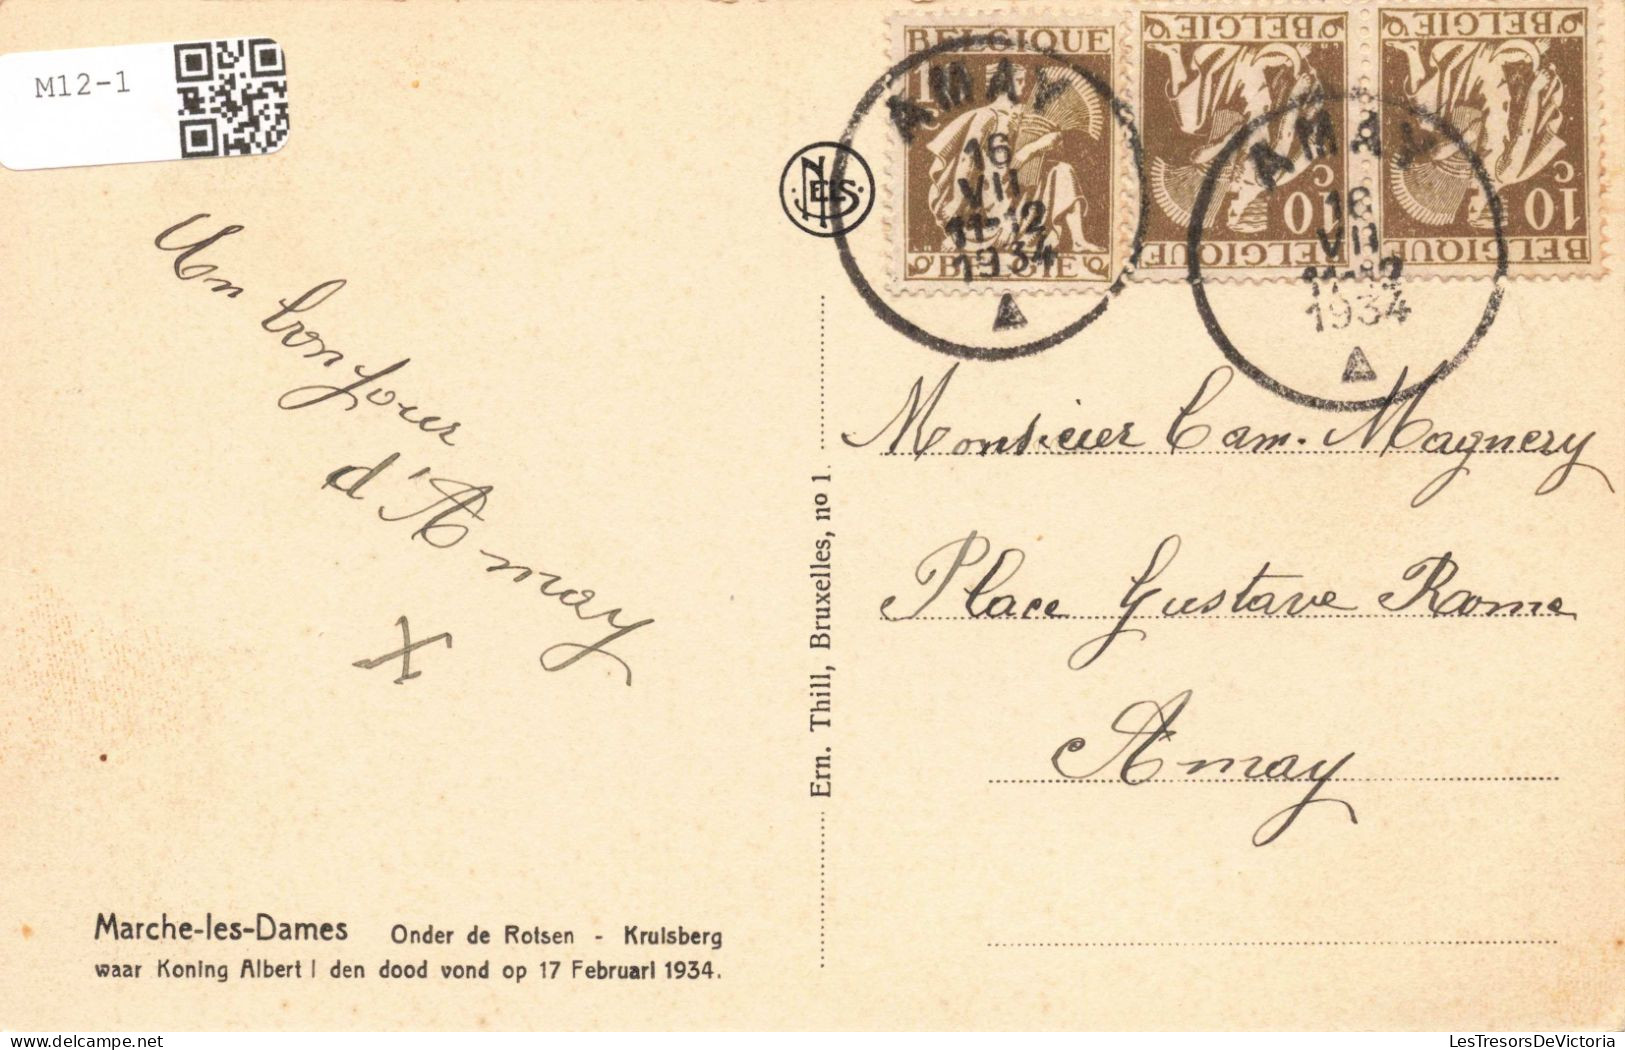 M12-1
BELGIQUE
10 C
BELGIË
BELGIQUE
10 C
BELGIË
BELGIQUE
10 C
BELGIË
AMAY
16
VII
11-12
1934
AMAY
16
VII
11-12
1934
NELS
Un bonjour
d'Amay
X
Monsieur Cam. Magnery
Place Gustave Rome
Amay
Ern. Thill, Bruxelles, no 1
Marche-les-Dames Onder de Rotsen - Kruisberg
waar Koning Albert I den dood vond op 17 Februari 1934.
www.LesTresorsDeVictoria.com